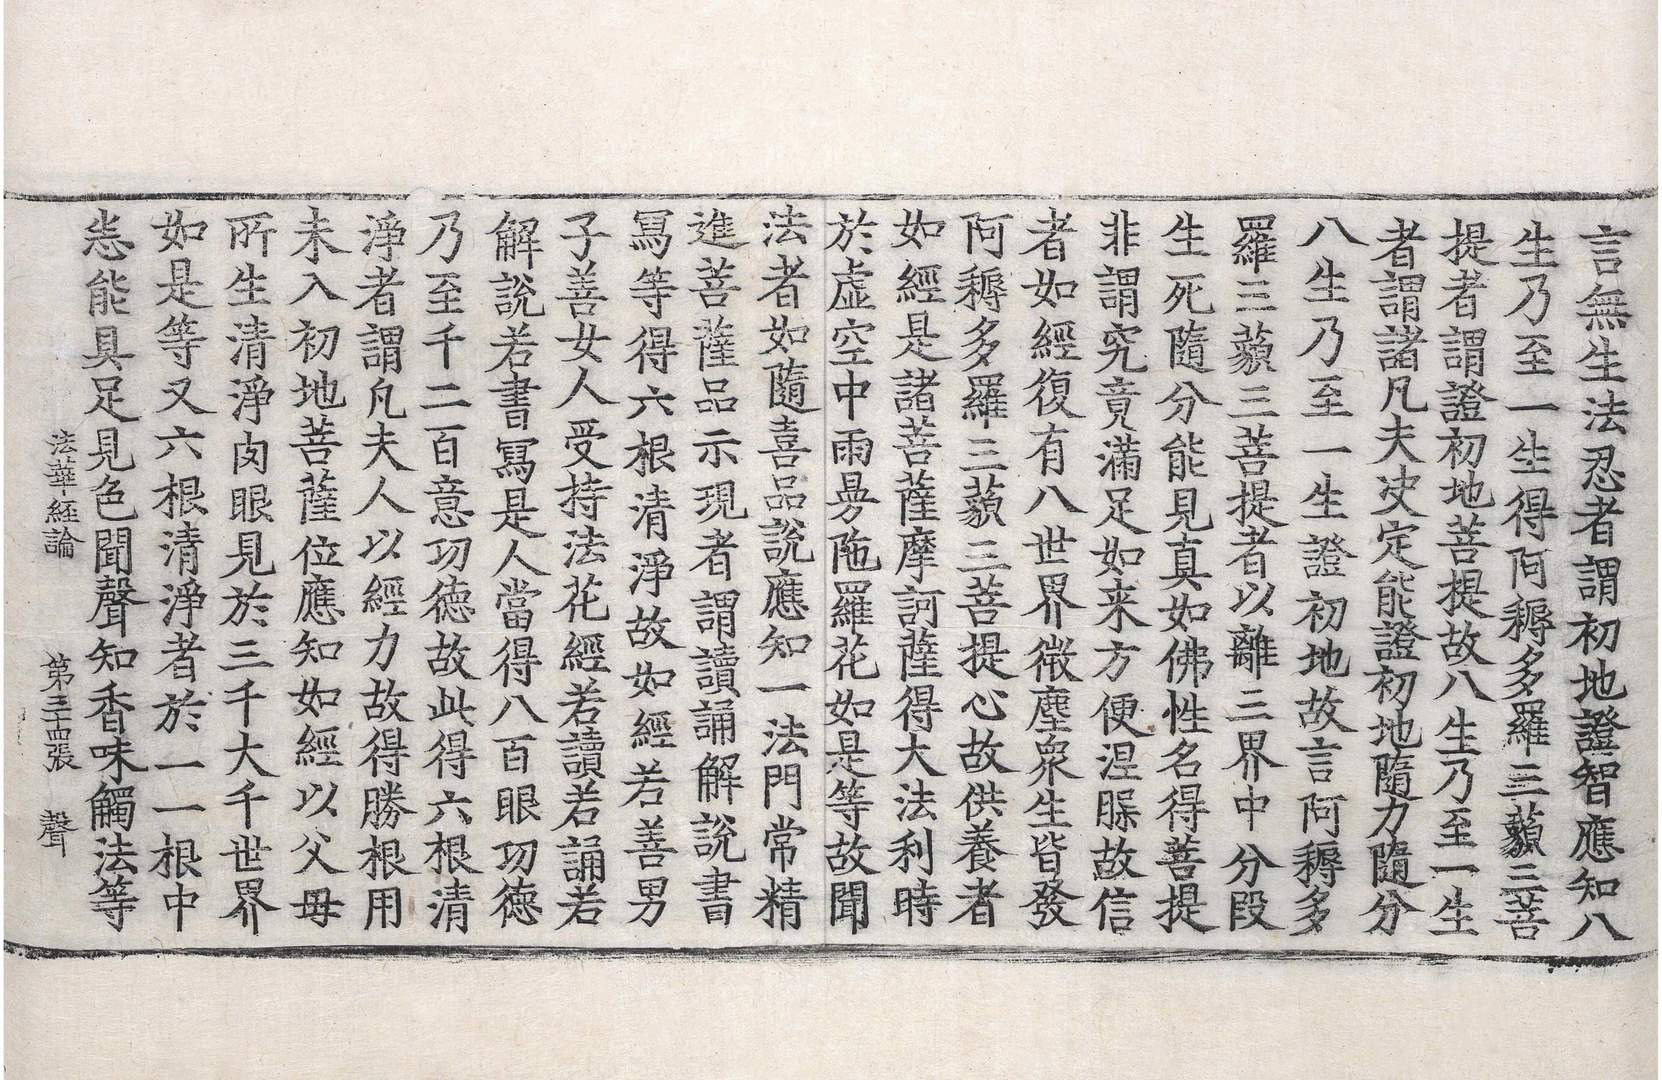 言無生法忍者謂初地證智應知八
生乃至一生得阿耨多羅三藐三菩
提者謂證初地菩提故八生乃至一生
者謂諸凡夫决定能證初地隨力隨分
八生乃至一生證初地故言阿耨多
羅三藐三菩提者以離三界中分段
生死隨分能見真如佛性名得菩提
非謂究竟滿足如来方便涅槃故信
者如經復有八世界微塵衆生皆發
阿耨多羅三藐三菩提心故供養者
如經是諸菩薩摩訶薩得大法利時
於虛空中雨曼陁羅花如是等故聞
法者如隨喜品說應知一法門常精
進菩薩品示現者謂讀誦解說書
寫等得六根清淨故如經若善男
子善女人受持法花經若讀若誦若
解說若書寫是人當得八百眼功德
乃至千二百意功德故此得六根清
淨者謂凡夫人以經力故得勝根用
未入初地菩薩位應知如經以父母
所生清淨肉眼見於三千大千世界
如是等又六根清淨者於一一根中
悉能具足見色聞聲知香味觸法等
法華経論 第三十四張 聲